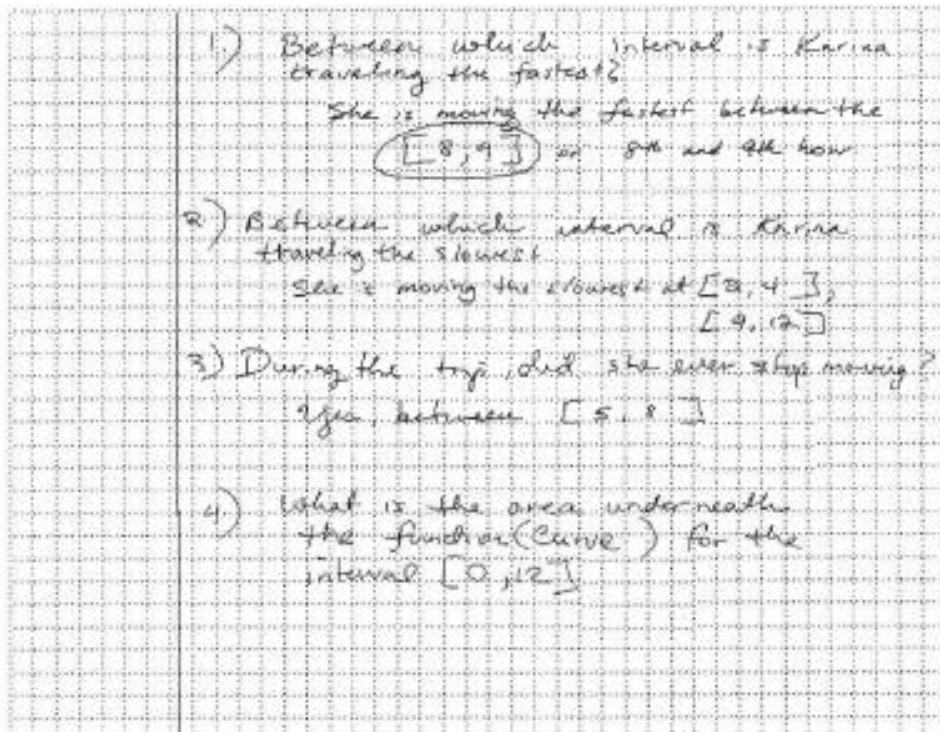 1) Between which interval is Karina
traveling the fastest?
She is moving the fastest between the
[8, 9] or 8th and 9th hour
2) Between which interval is Karina
traveling the slowest
She is moving the slowest at [2, 4],
[9, 12]
3) During the trip, did she ever stop moving?
Yes, between [5, 8]
4) What is the area underneath
the function (Curve) for the
interval [0, 12]